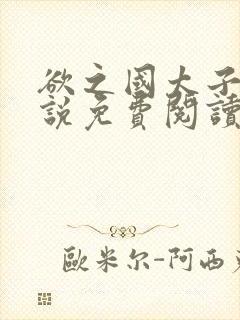 欲之國太子
說免費閱讀
歐米尔-阿西